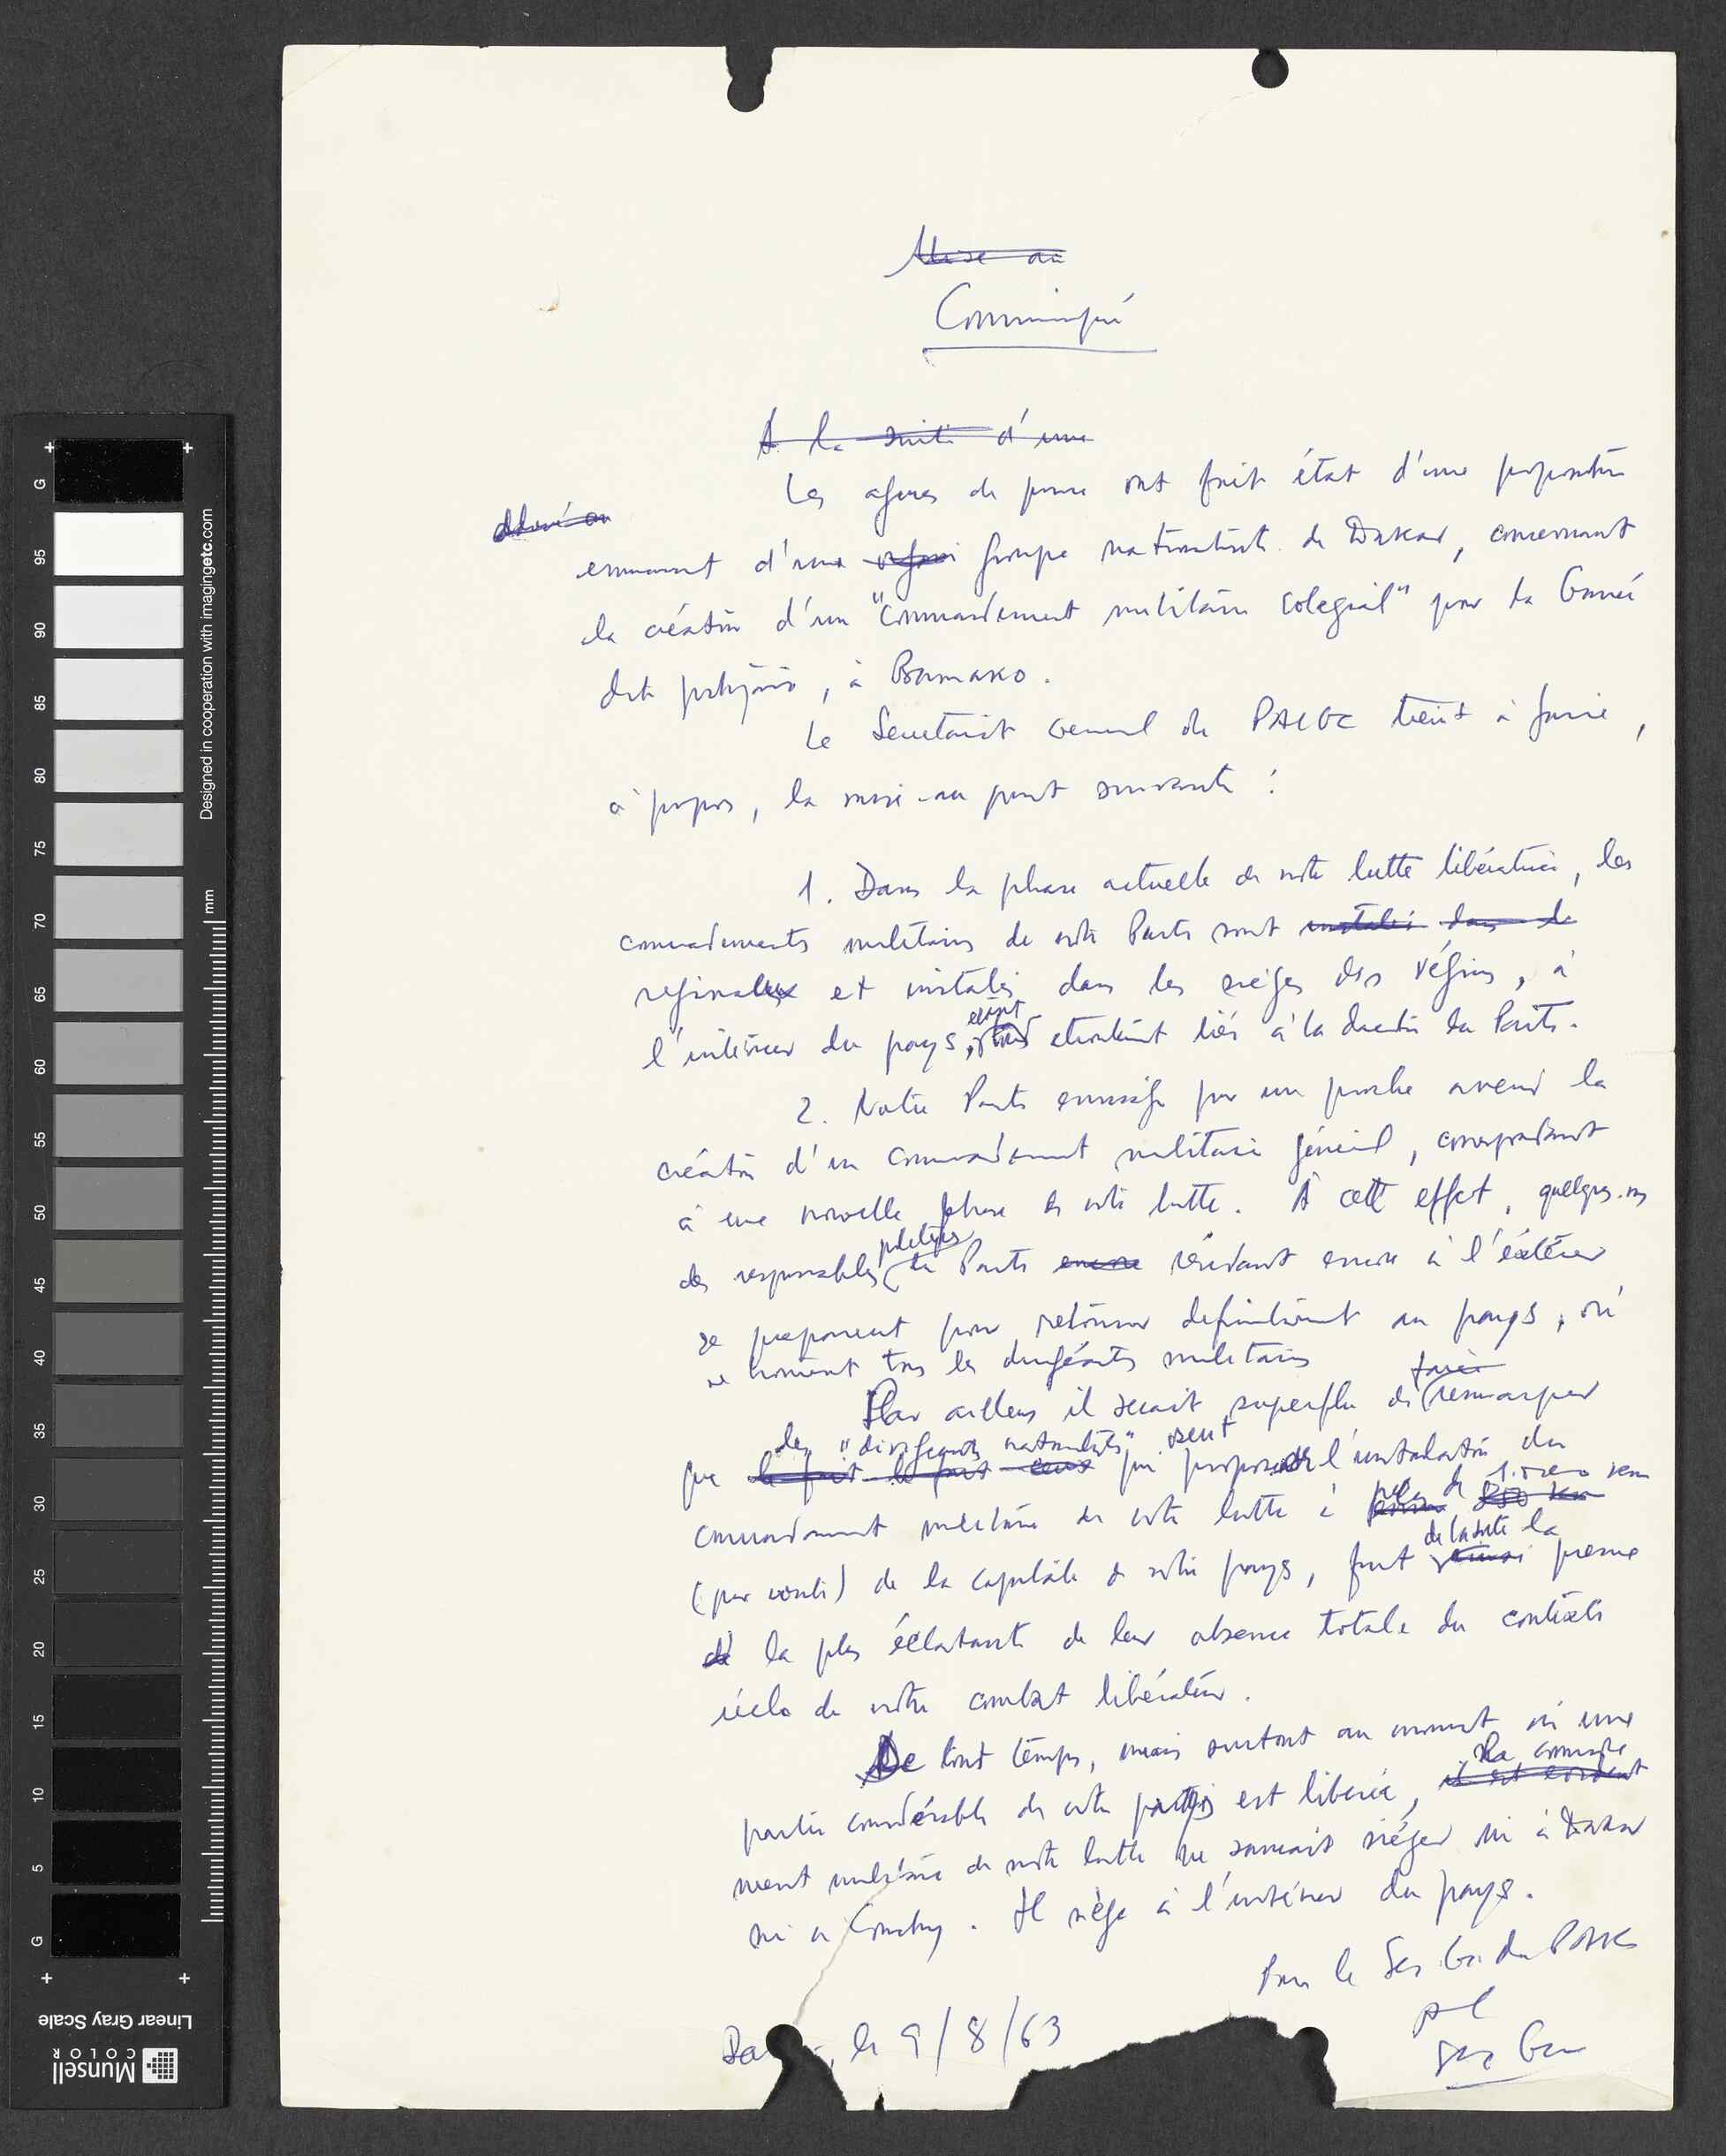 Mise au
Communiqué
A la suite d'une
Les agences de presse ont fait état d'une proposition
émanant d'une groupe nationaliste de Dakar, concernant
la création d'un "commandement militaire colegial" pour la Guinée
dite portugaise, à Bamako.
Le Secretariat General du PAIGC tient à faire,
à propos, la mise-au point suivante :
1. Dans la phase actuelle de notre lutte libératrice, les
commandements militaires de notre Parti sont installés dans le
regionaux et installés dans les sièges des régions, à
l'intérieur du pays, étant etroitement liés à la direction du Parti.
2. Notre Parti envisage pour un proche avenir la
création d'un commandement militaire général, correspondant
à une nouvelle phase de notre lutte. À cett effet, quelques-uns
des responsables politiques du Parti encore résidant encore à l'éxtérieur
se preparent pour retourner definitivement au pays, où
se trouvent tous les dirigeants militaires
Par ailleurs il serait superflu de faire remarquer
que des "dirigeants nationalistes" osent
le fait le fait ceux qui proposer l'installation du
commandement militaire de notre lutte à près de 1.000 km
850 km
(par route) de la capitale de notre pays, font de la sorte la preuve
ainsi
de la plus éclatante de leur absence totale du contexte
réelo de notre combat libérateur.
De tout temps, mais surtout au moment où une
partie considérable de notre pays est liberée, il est évident le commande
ment militaire de notre lutte ne saurait siéger ni à Dakar
ni à Conakry. Il siège à l'intérieur du pays.
Pour le Sec. Gen. du PAIGC
Da, le 9/8/63
Sec Gen